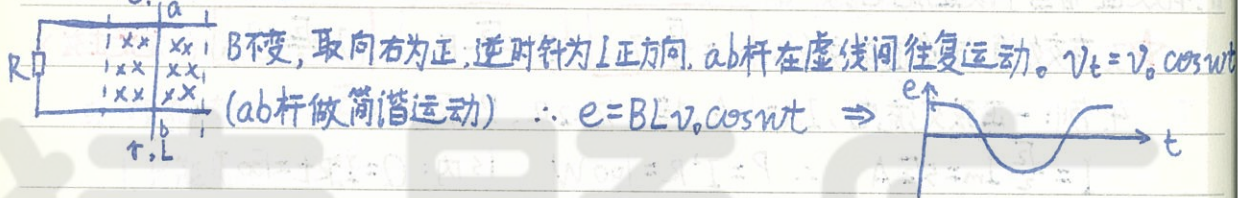 a
×× ××
R ×× ××
×× ××
b
r, L
B不变,取向右为正,逆时针为I正方向.ab杆在虚线间往复运动。v_t=v_0 cosωt
(ab杆做简谐运动) ∴ e=BLv_0cosωt ⇒
e
t